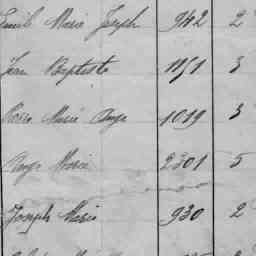 Emile Marie Joseph 942 2
Jean Baptiste 1151 3
Marie Ange 1019 3
Ange Marie 2301 5
Joseph Marie 930 2